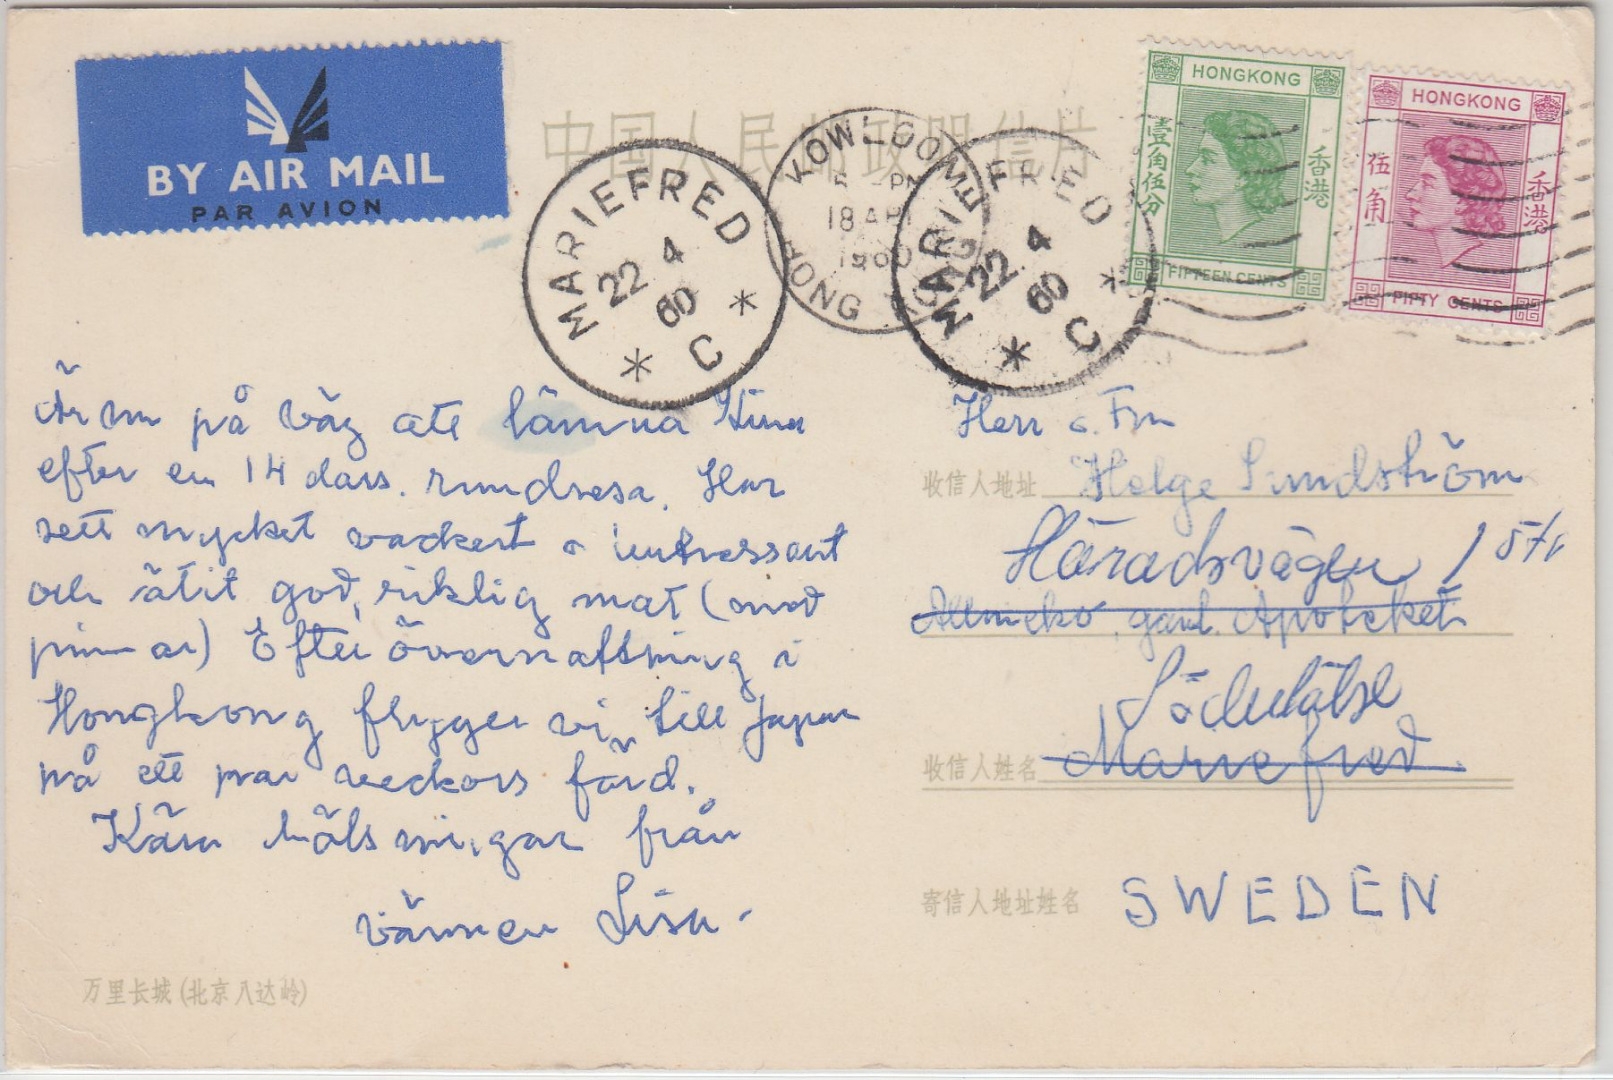 BY AIR MAIL
PAR AVION
中国人民邮政明信片
MARIEFRED
22 4
60
C
KOWLOON
5 - PM
18 AP
1960
HONG KONG
MARIEFRED
22 4
60
C
HONGKONG
壹角伍分
香港
FIFTEEN CENTS
HONGKONG
伍角
香港
FIFTY CENTS
Är nu på väg att lämna Kina
efter en 14 dars. rundresa. Har
sett mycket vackert o intressant
och ätit god, riklig mat (med
pinnar) Efter övernattning i
Hongkong flyger vi till Japan
på ett par veckors färd.
Kära hälsningar från
vännen Lisa.
万里长城(北京八达岭)
Herr o. Fru
收信人地址 Helge Sundström
Häradsvägen
gaml. Apoteket
Södertälje
收信人姓名 Mariefred.
寄信人地址姓名 SWEDEN